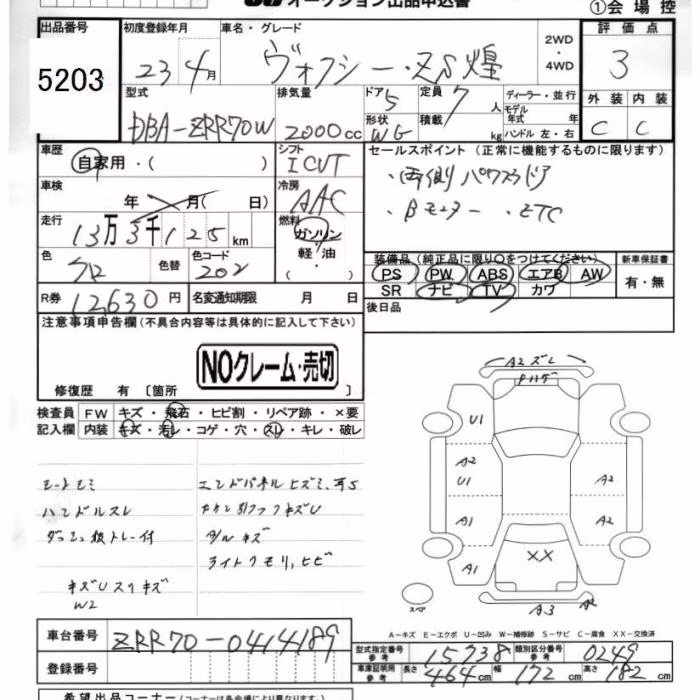 オークション出品申込書
①会場控
出品番号
5203
初度登録年月
23年4月
車名・グレード
ヴォクシー・ZS煌
2WD・4WD
評価点
3
型式
DBA-ZRR70W
排気量
2000cc
ドア
5
形状
WG
定員
7人
積載
kg
ディーラー・並行
モデル年式 年式
ハンドル 左・右
外装 内装
C C
車歴
自家用・( )
シフト
ICVT
セールスポイント(正常に機能するものに限ります)
・両側パワスラドア
・Bモニター ・ETC
車検
年 月( 日)
冷房
AAC
走行
13万3千125km
燃料
ガソリン・軽油・( )
色
クロ
色替
色コード
202
装備品(純正品に限り○をつけてください)
PS PW ABS エアB AW
SR ナビ TV カワ
新車保証書
有・無
R券
12630円
名変通知期限 月 日
後日品
注意事項申告欄(不具合内容等は具体的に記入して下さい)
NOクレーム・売切
修復歴 有〔箇所 〕
検査員記入欄
FW キズ・飛石・ヒビ割・リペア跡・×要
内装 キズ・汚レ・コゲ・穴・スレ・キレ・破レ
ハンドルスレ
ダッシュ板トレー付
キズUスリキズ
W2
エンドパネルヒズミ、
ライトクモリ,ヒビ
A2ズレ
Pハゲ
U1
A2
U1
A2
A1
A2
A1
XX
A2
A3
スペア
A-キズ E-エクボ U-凹み W-補修跡 S-サビ C-腐食 XX-交換済
車台番号
ZRR70-0414189
登録番号
型式指定番号 参考
15738
類別区分番号 参考
0249
車庫証明用 参考
長さ 464cm 幅 172cm 高さ 182cm
希望出品コーナー(コーナーは各会場によって異なります)